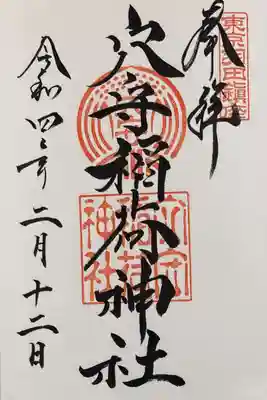 奉拝
東京羽田鎮座
穴守稲荷神社
穴守
稲荷
神社
令和四年二月十二日